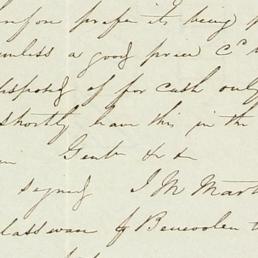 prefer its being
unless a good price Cd
disposed of for cash only
shortly have this in the
Gentn &c &c
signed J M Mart
Glassware pr Benevolen t